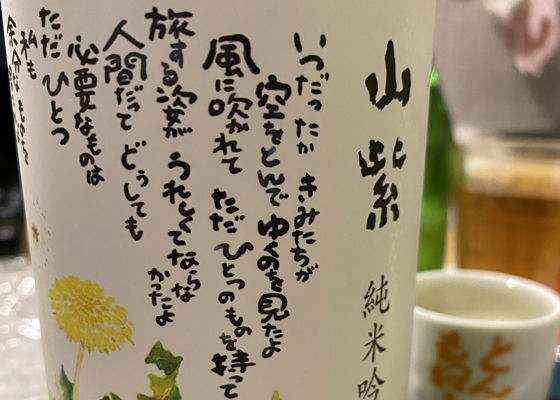 山紫
純米吟
いつだったか きみたちが
空をとんで ゆくのを見たよ
風に吹かれて ただひとつのものを持って
旅する姿が うれしくてならなかったよ
人間だって どうしても
必要なものは
ただ ひとつ
私も
余分なものを
とん